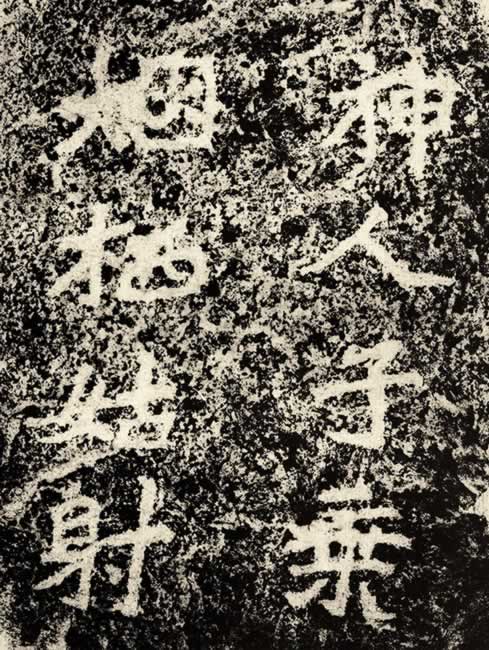 神人子乘
烟栖姑射